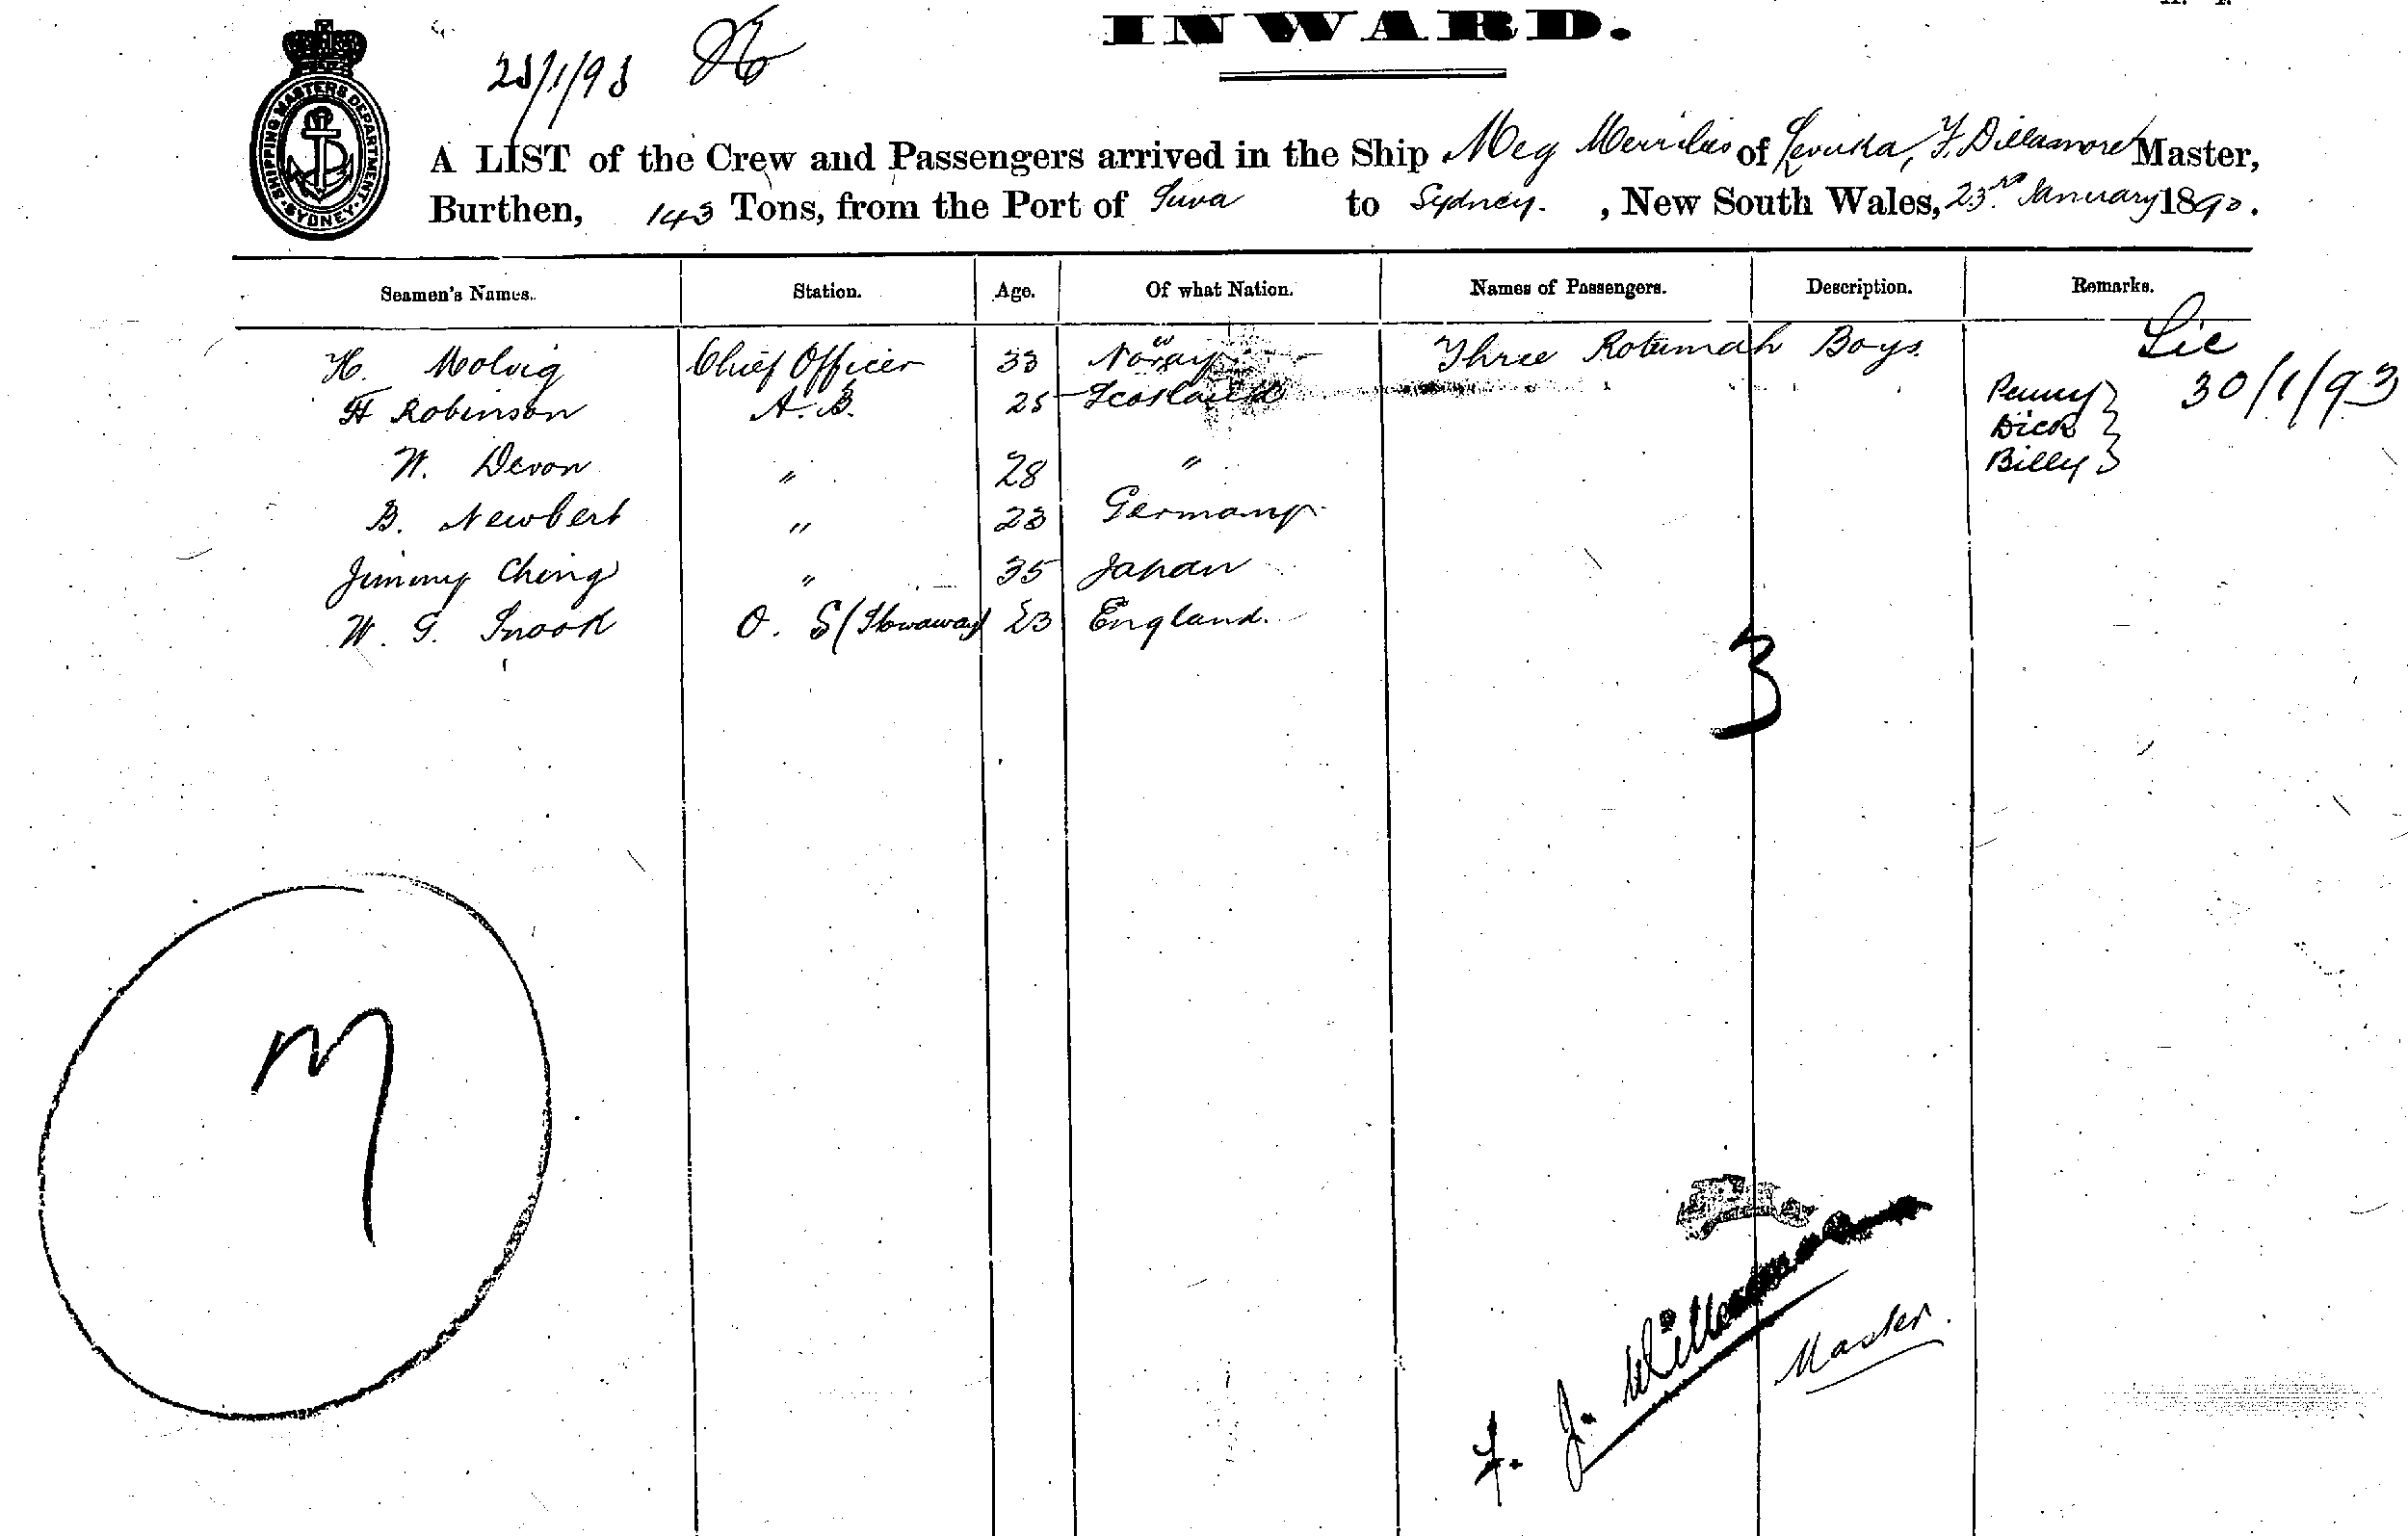 INWARD.
23/1/93
SHIPPING MASTERS DEPARTMENT
SYDNEY
A LIST of the Crew and Passengers arrived in the Ship Meg Merrilies of Levuka, F. Dillamore Master,
Burthen, 143 Tons, from the Port of Suva to Sydney. , New South Wales, 23rd January 1893.
Seamen's Names. Station. Age. Of what Nation. Names of Passengers. Description. Remarks.
Lic
30/1/93
H. Molvig Chief Officer 33 Norway Three Rotumah Boys. Penny
H Robinson A.B. 25 Scotland Dick
W. Devon " 28 " Billy
B. Newbert " 23 Germany
Jimmy Ching " 35 Japan
W. G. Snook O. S (Stowaway) 23 England.
3
7
F. J. Dillamore
Master.